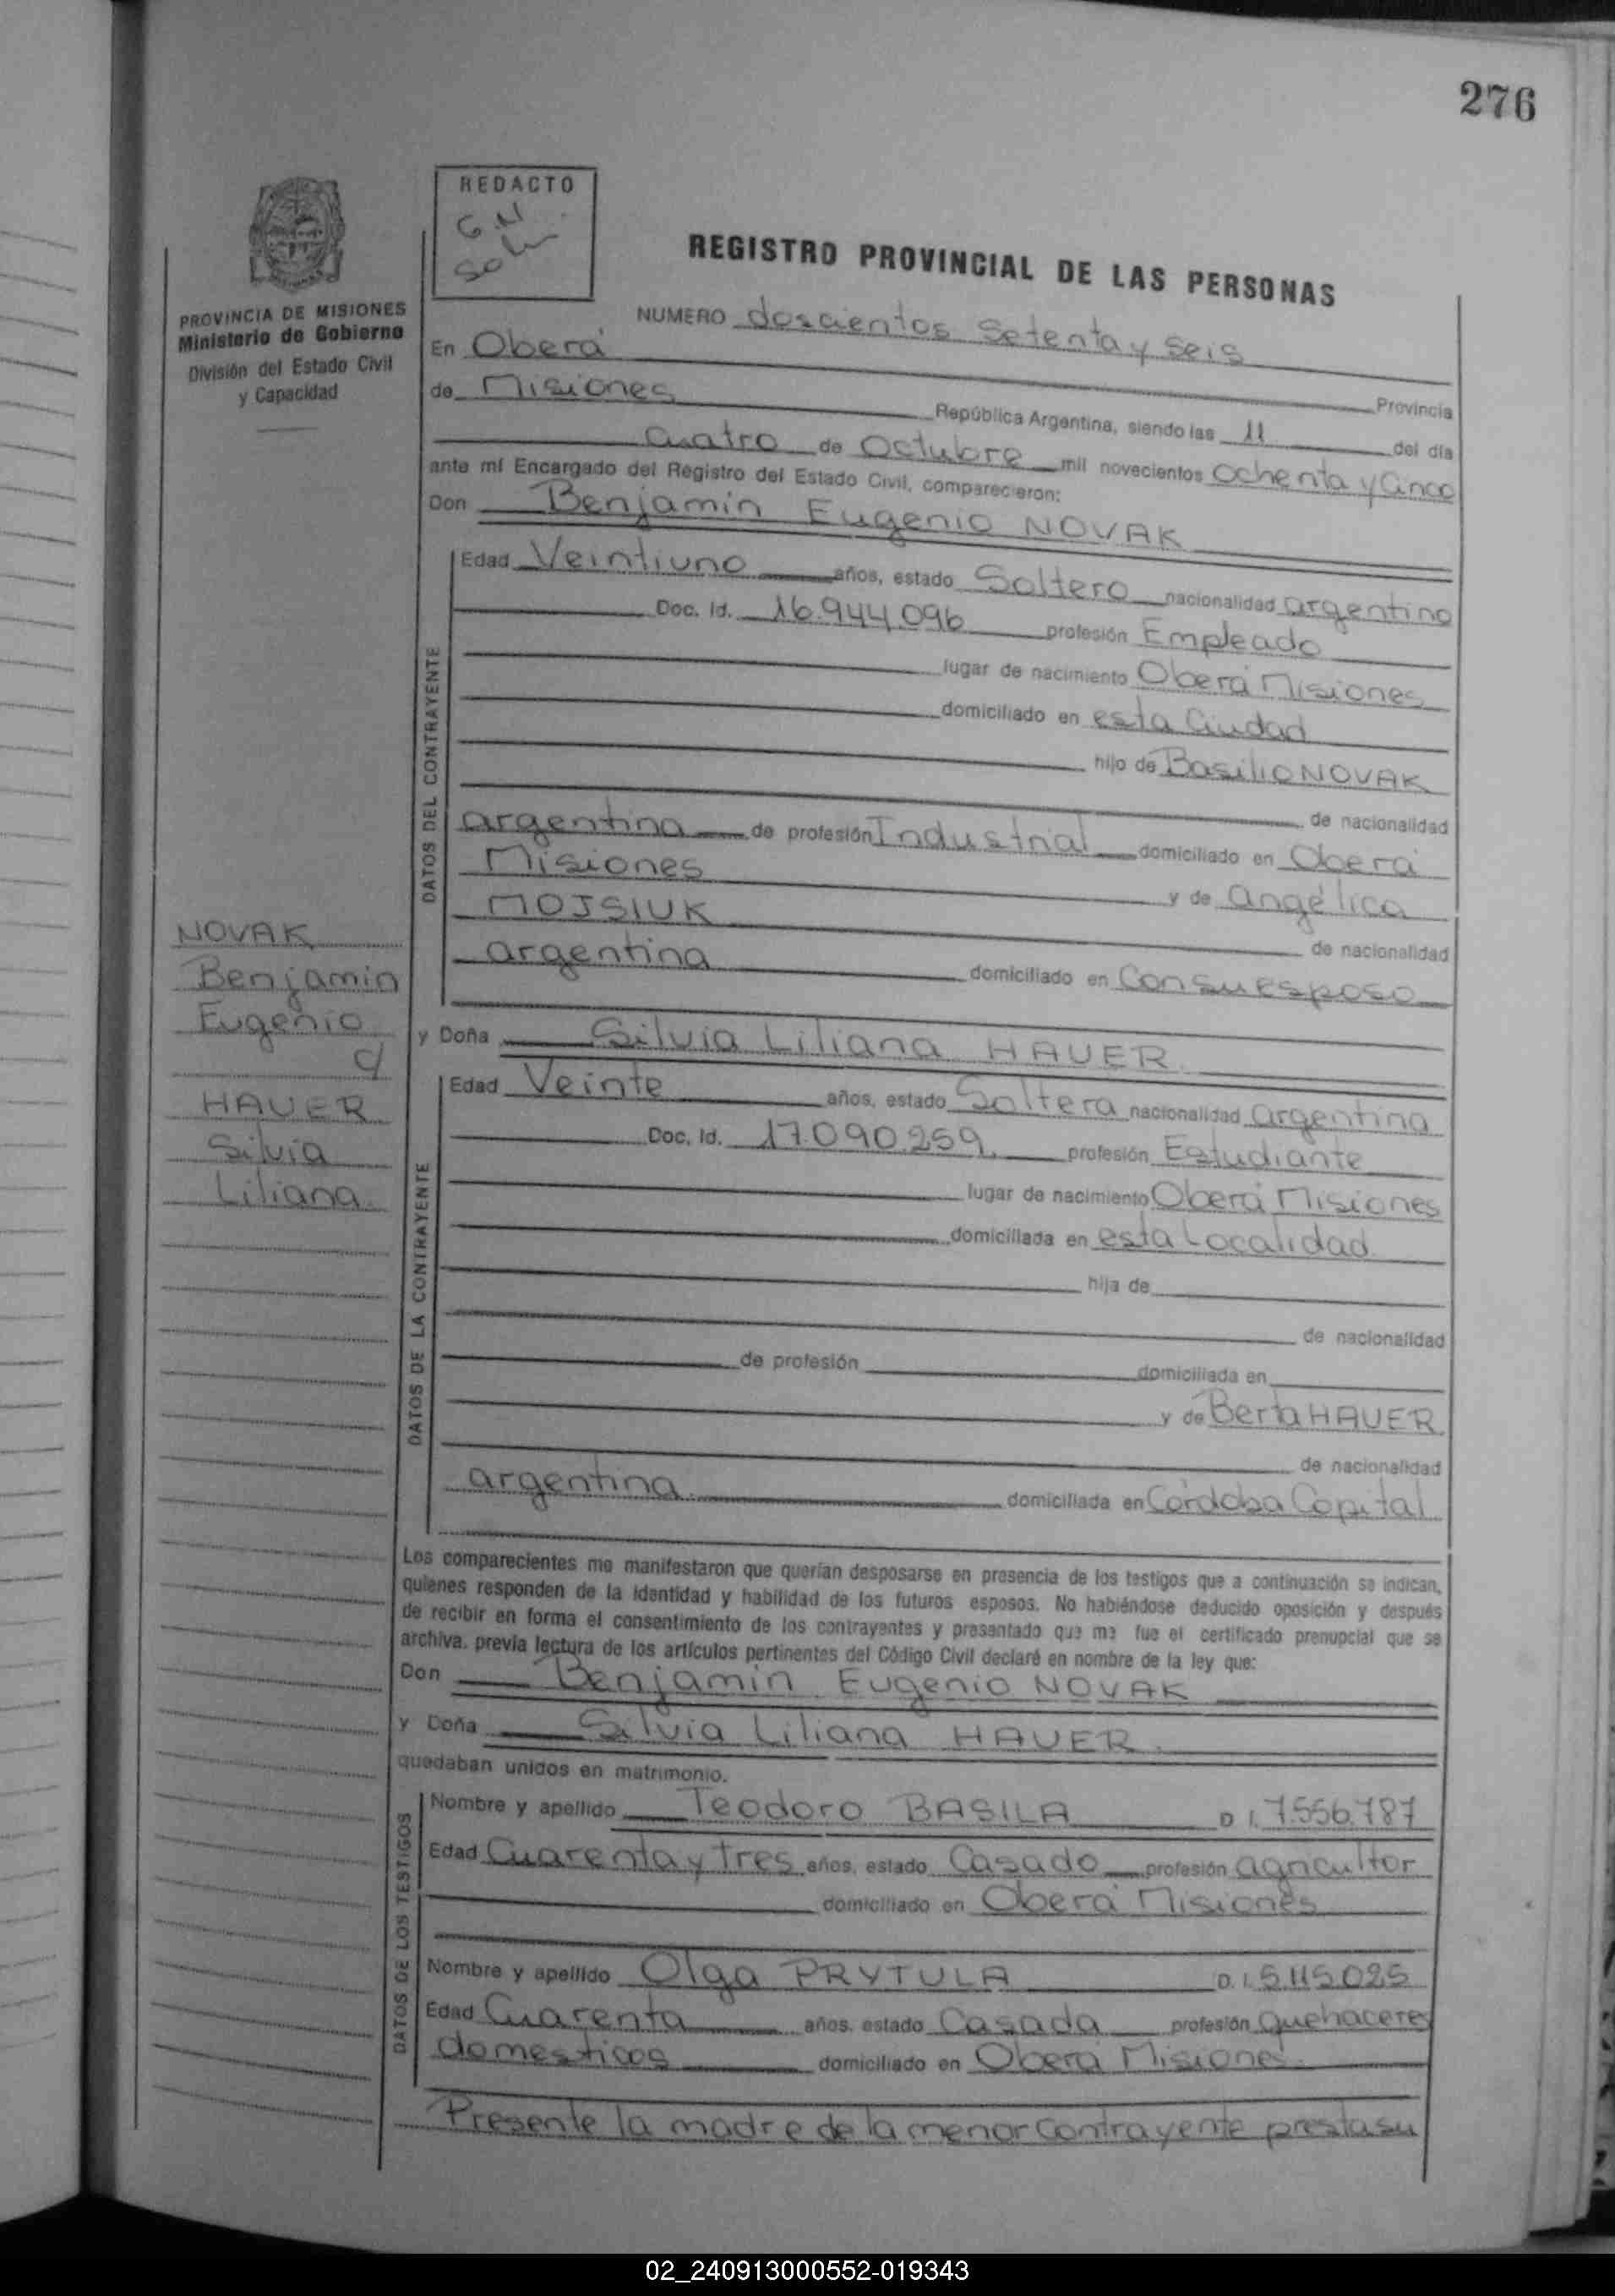 276
REDACTO
G.N
REGISTRO PROVINCIAL DE LAS PERSONAS
PROVINCIA DE MISIONES
Ministerio de Gobierno
División del Estado Civil
y Capacidad
NUMERO doscientos Setenta y seis
En Oberá Provincia
de Misiones República Argentina, siendo las 11 del día
cuatro de Octubre mil novecientos ochenta y cinco
ante mí Encargado del Registro del Estado Civil, comparecieron:
Don Benjamin Eugenio NOVAK
DATOS DEL CONTRAYENTE
Edad Veintiuno años, estado Soltero nacionalidad argentino
Doc. Id. 16.944.096 profesión Empleado
lugar de nacimiento Oberá Misiones
domiciliado en esta Ciudad
hijo de Basilio NOVAK
de nacionalidad
argentina de profesión Industrial domiciliado en Oberá
Misiones y de Angélica
MOJSIUK de nacionalidad
argentina domiciliado en Con su esposo
NOVAK
Benjamin
Eugenio
c/
HAUER
Silvia
Liliana
y Doña Silvia Liliana HAUER
DATOS DE LA CONTRAYENTE
Edad Veinte años, estado Soltera nacionalidad argentina
Doc. Id. 17.090.259. profesión Estudiante
lugar de nacimiento Oberá Misiones
domiciliada en esta Localidad
hija de
de nacionalidad
de profesión domiciliada en
y de Berta HAUER
de nacionalidad
argentina domiciliada en Córdoba Capital
Los comparecientes me manifestaron que querían desposarse en presencia de los testigos que a continuación se indican,
quienes responden de la identidad y habilidad de los futuros esposos. No habiéndose deducido oposición y después
de recibir en forma el consentimiento de los contrayentes y presentado que me fue el certificado prenupcial que se
archiva, previa lectura de los artículos pertinentes del Código Civil declaré en nombre de la ley que:
Don Benjamin Eugenio NOVAK
y Doña Silvia Liliana HAUER
quedaban unidos en matrimonio.
DATOS DE LOS TESTIGOS
Nombre y apellido Teodoro BASILA D I. 7.556.787
Edad Cuarenta y tres años, estado Casado profesión agricultor
domiciliado en Oberá Misiones
Nombre y apellido Olga PRYTULA D. I. 5.115.025
Edad Cuarenta años, estado Casada profesión quehaceres
domesticos domiciliado en Oberá Misiones
Presente la madre de la menor contrayente presta su
02_240913000552-019343